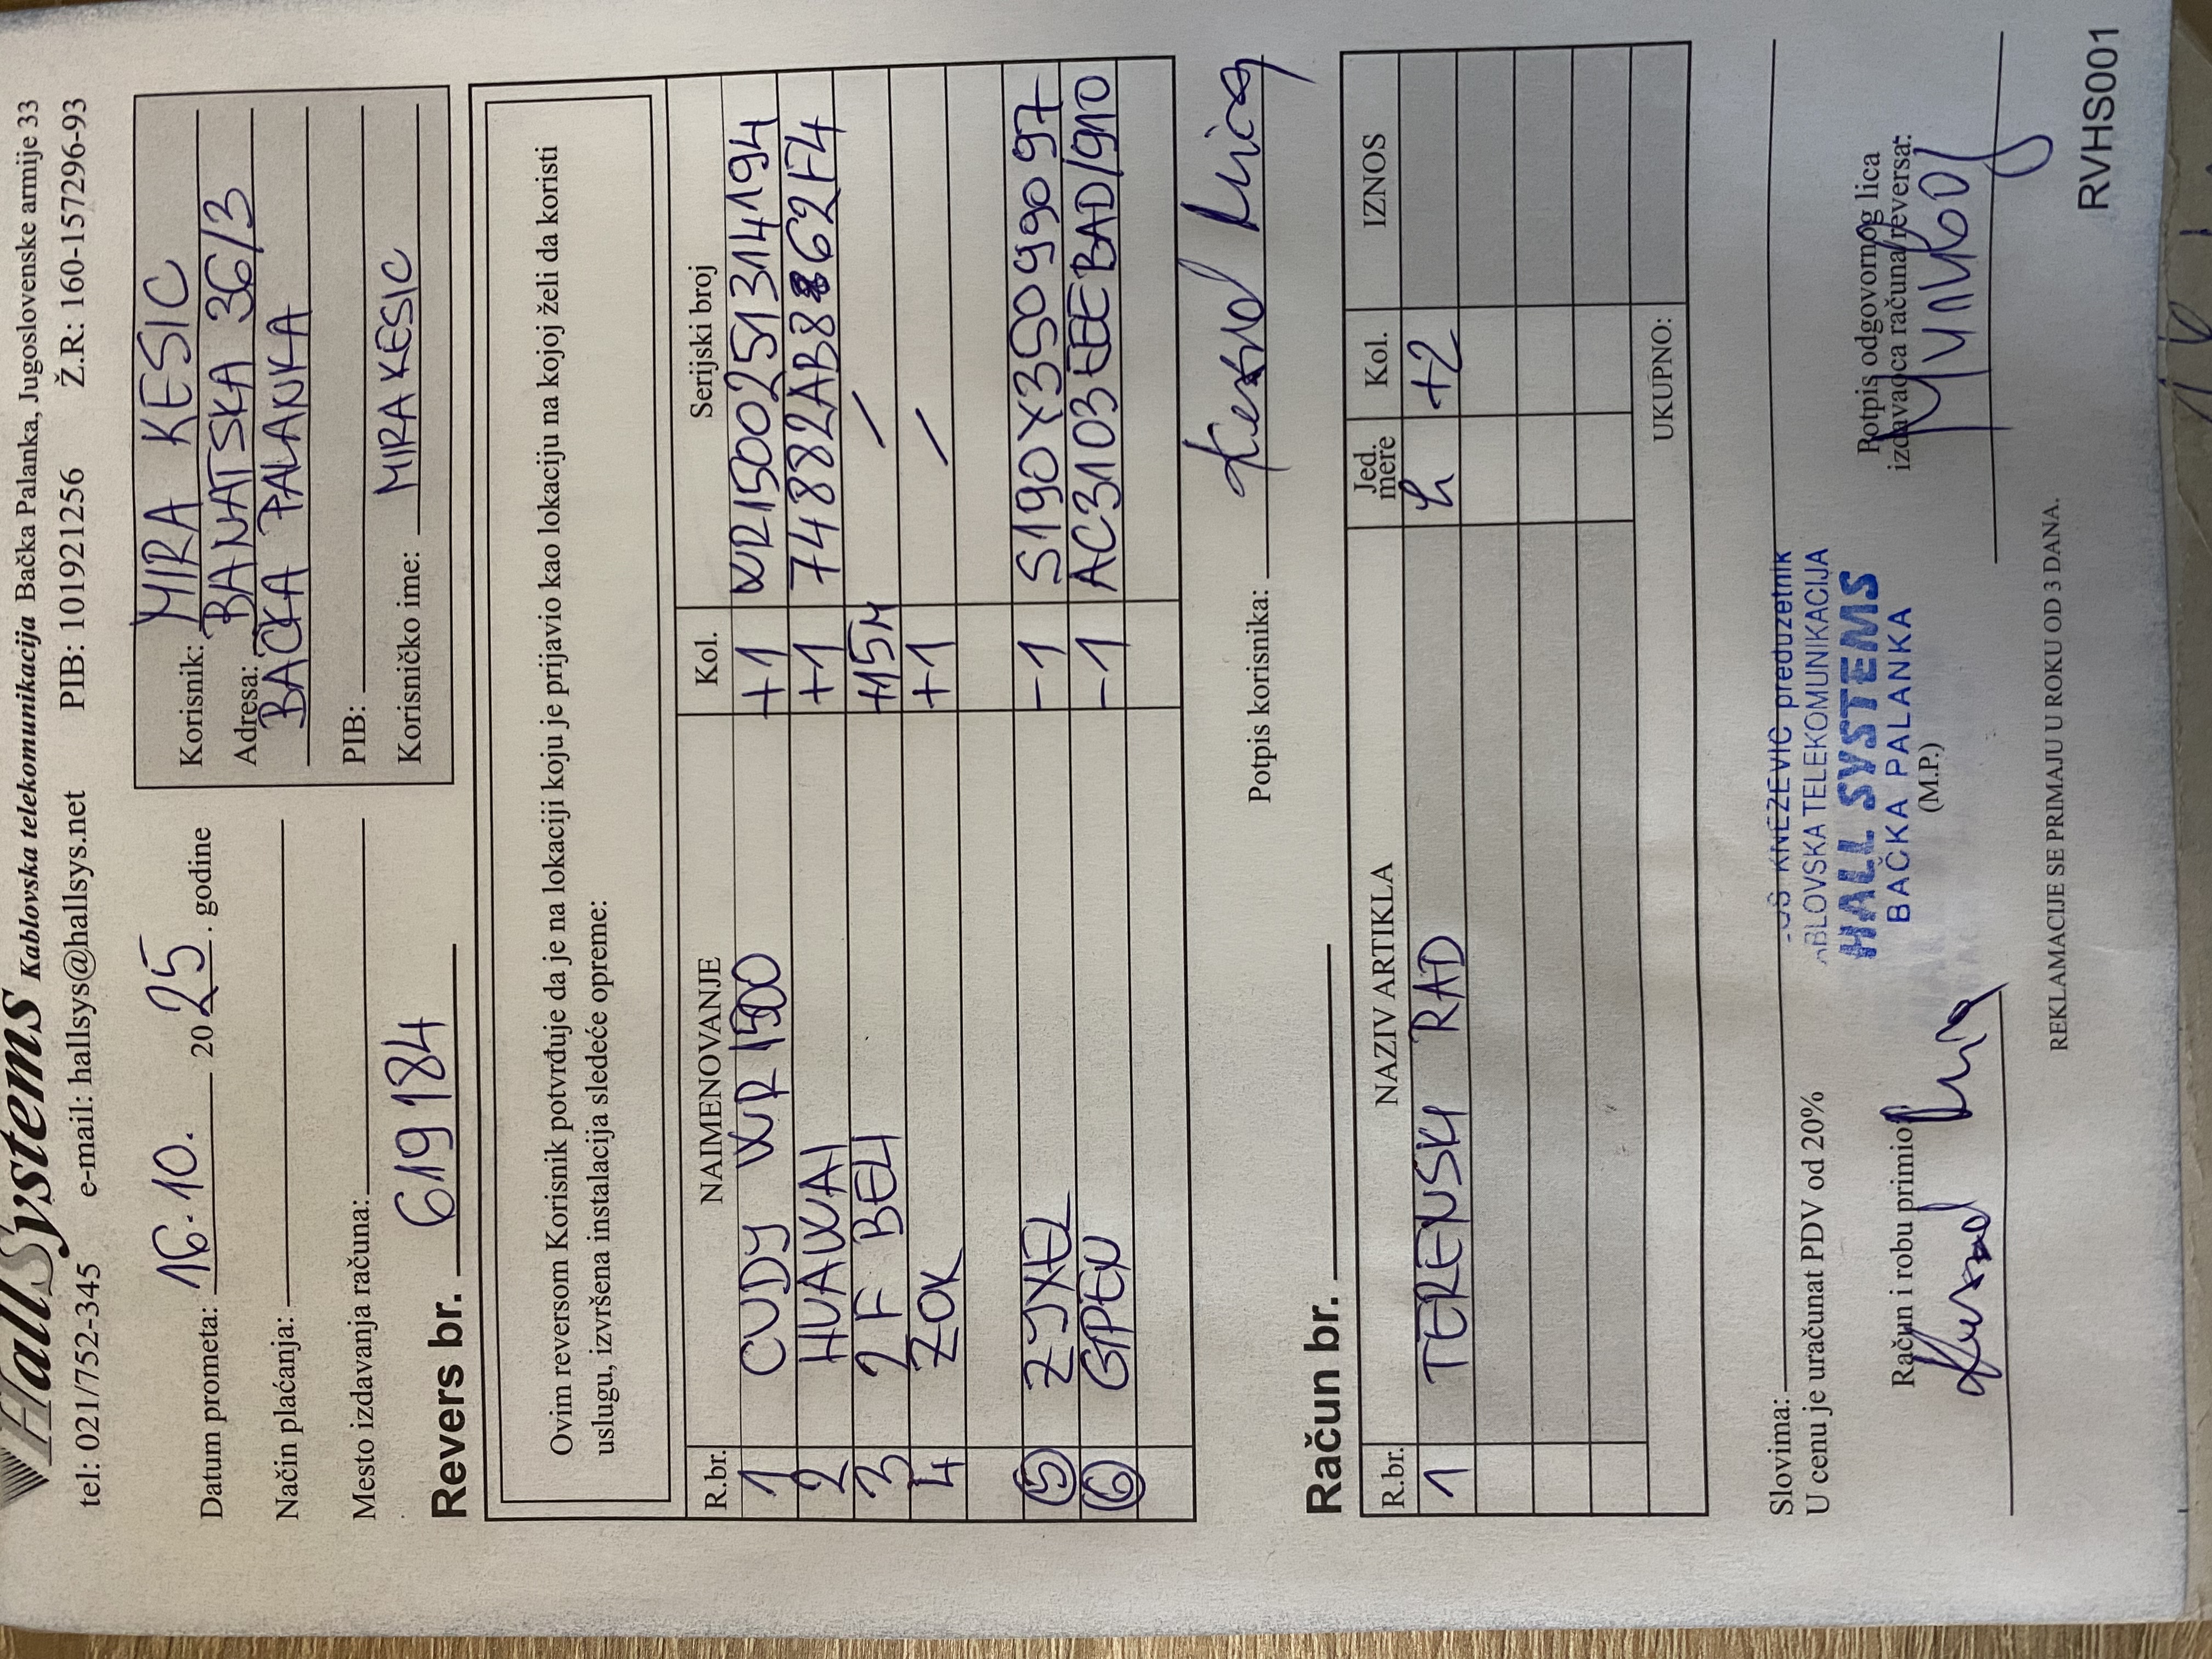 HallSystems Kablovska telekomunikacija Bačka Palanka, Jugoslovenske armije 33
tel: 021/752-345 e-mail: hallsys@hallsys.net PIB: 101921256 Ž.R: 160-157296-93
Datum prometa: 16.10. 2025. godine
Način plaćanja:
Mesto izdavanja računa:
Korisnik: MIRA KESIC
Adresa: BANATSKA 36/3
BACKA PALANKA
PIB:
Korisničko ime: MIRA KESIC
Revers br. 619184
Ovim reversom Korisnik potvrđuje da je na lokaciji koju je prijavio kao lokaciju na kojoj želi da koristi
uslugu, izvršena instalacija sledeće opreme:
R.br. NAIMENOVANJE Kol. Serijski broj
1 CUDY WR1500 +1 WR15002513144194
2 HUAWAI +1 74882AB8862F4
3 2F BELI +15M /
4 ZOK +1 /
5 ZYXEL -1 S190Y35099097
6 GPEN -1 AC3103EEEBAD/910
Potpis korisnika:
Račun br.
R.br. NAZIV ARTIKLA Jed. mere Kol. IZNOS
1 TERENSKI RAD h +2
UKUPNO:
Slovima:
U cenu je uračunat PDV od 20%
KNEŽEVIĆ preduzetnik
ABLOVSKA TELEKOMUNIKACIJA
HALL SYSTEMS
BAČKA PALANKA
(M.P.)
Račun i robu primio:
Potpis odgovornog lica
izdavaoca računa/reversa:
REKLAMACIJE SE PRIMAJU U ROKU OD 3 DANA.
RVHS001